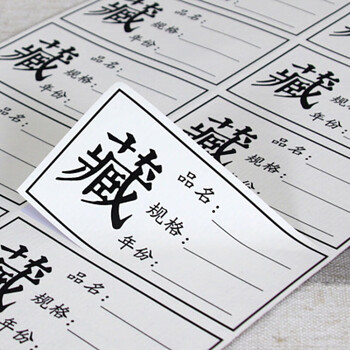 藏
品名：
规格：
年份：
藏
规格：
年份：
藏
品名：
规格：
年份：
藏
规格：
年份：
藏
品名：
规格：
年份：
藏
品名：
规格：
年份：